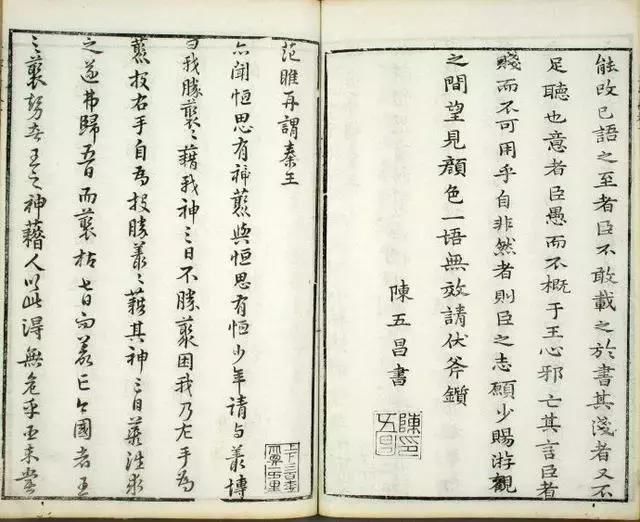 能改已語之至者臣不敢載之於書其淺者又不
足聽也意者臣愚而不概于王心邪亡其言臣者
賤而不可用乎自非然者則臣之志願少賜游觀
之間望見顏色一語無效請伏斧鑕
陳五昌書
陳印
五昌
范雎再謂秦王
亦聞恒思有神叢與恒思有悍少年請与叢博
曰我勝叢〻藉我神三日不勝叢困我乃左手為
叢投右手自為投勝叢〻藉其神三日叢往求
之遂弗歸五日而叢枯七日而叢亡今國者王
之叢勢者王之神藉人以此得無危乎臣未嘗